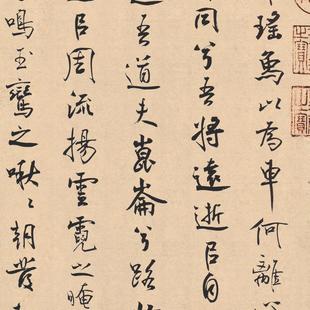 瑤象以為車何離
同兮吾將遠逝㠯自
吾道夫崑崙兮路
㠯周流揚雲霓之晻
鳴玉鸞之啾〻朝發